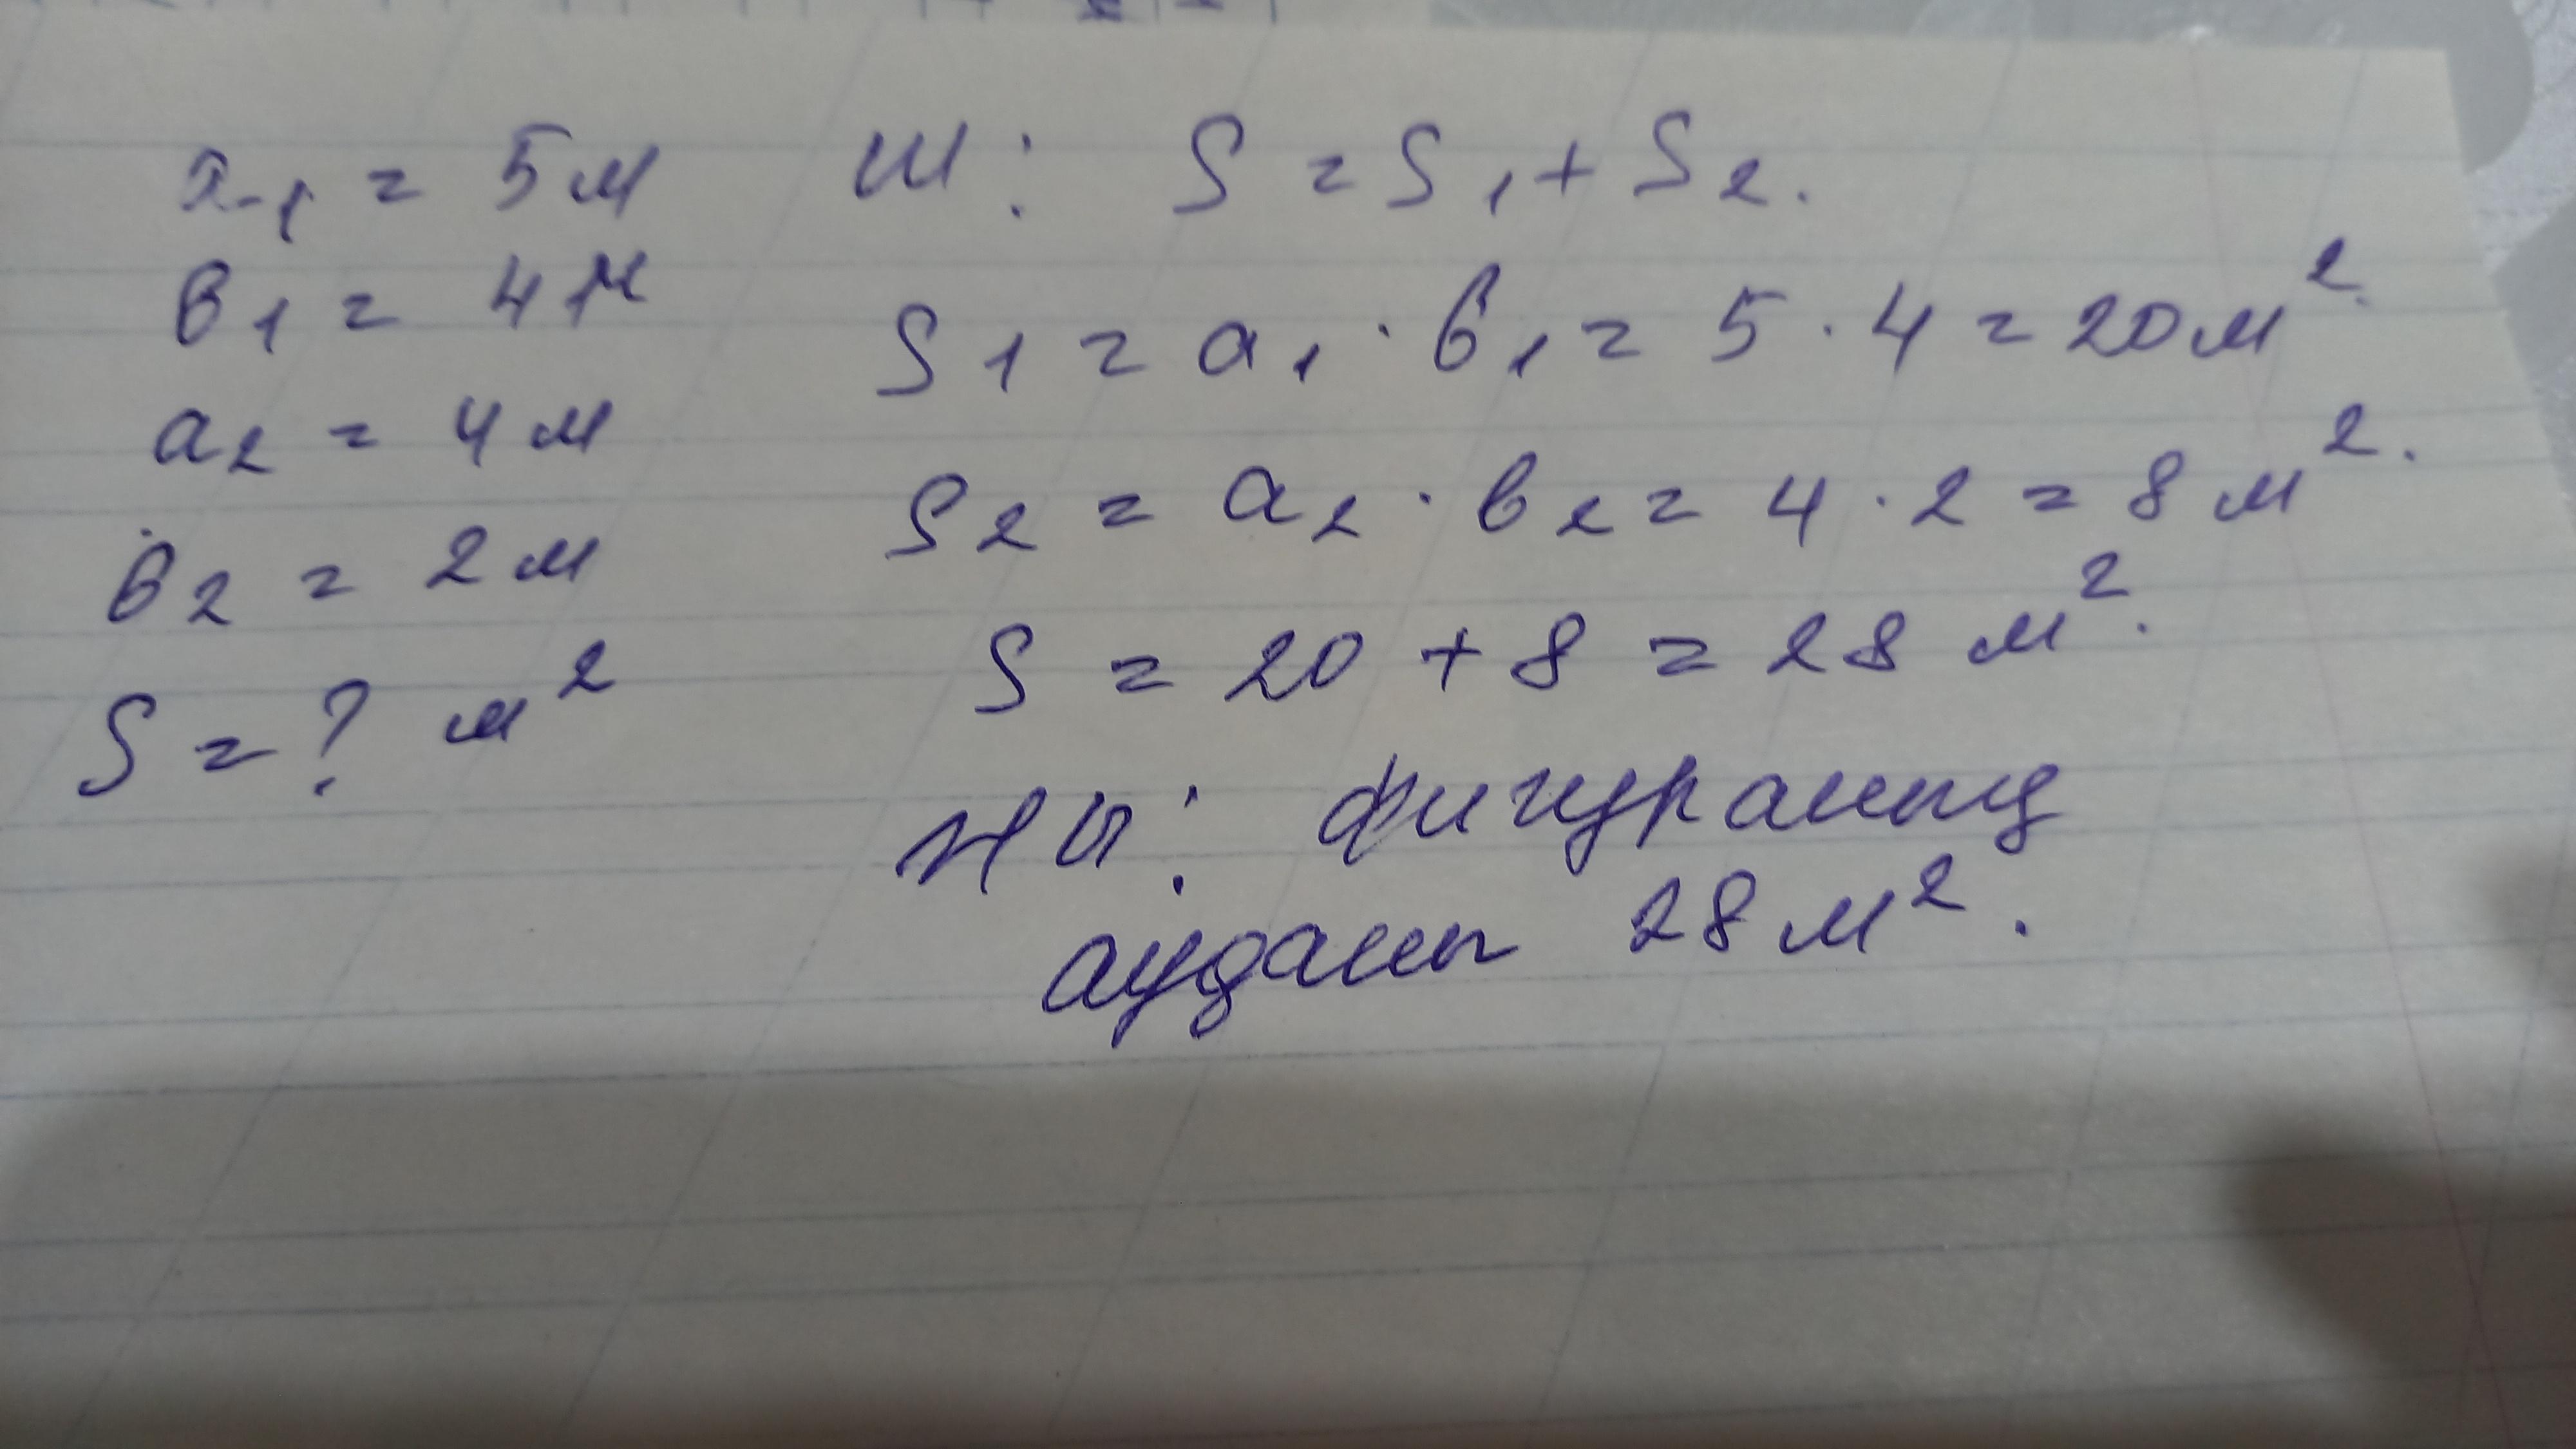 a₁ = 5 м
в₁ = 4 м
a₂ = 4 м
в₂ = 2 м
S = ? м²
Ш: S = S₁ + S₂.
S₁ = a₁ · в₁ = 5 · 4 = 20 м².
S₂ = a₂ · в₂ = 4 · 2 = 8 м².
S = 20 + 8 = 28 м².
Жы: фигураның
ауданы 28 м².